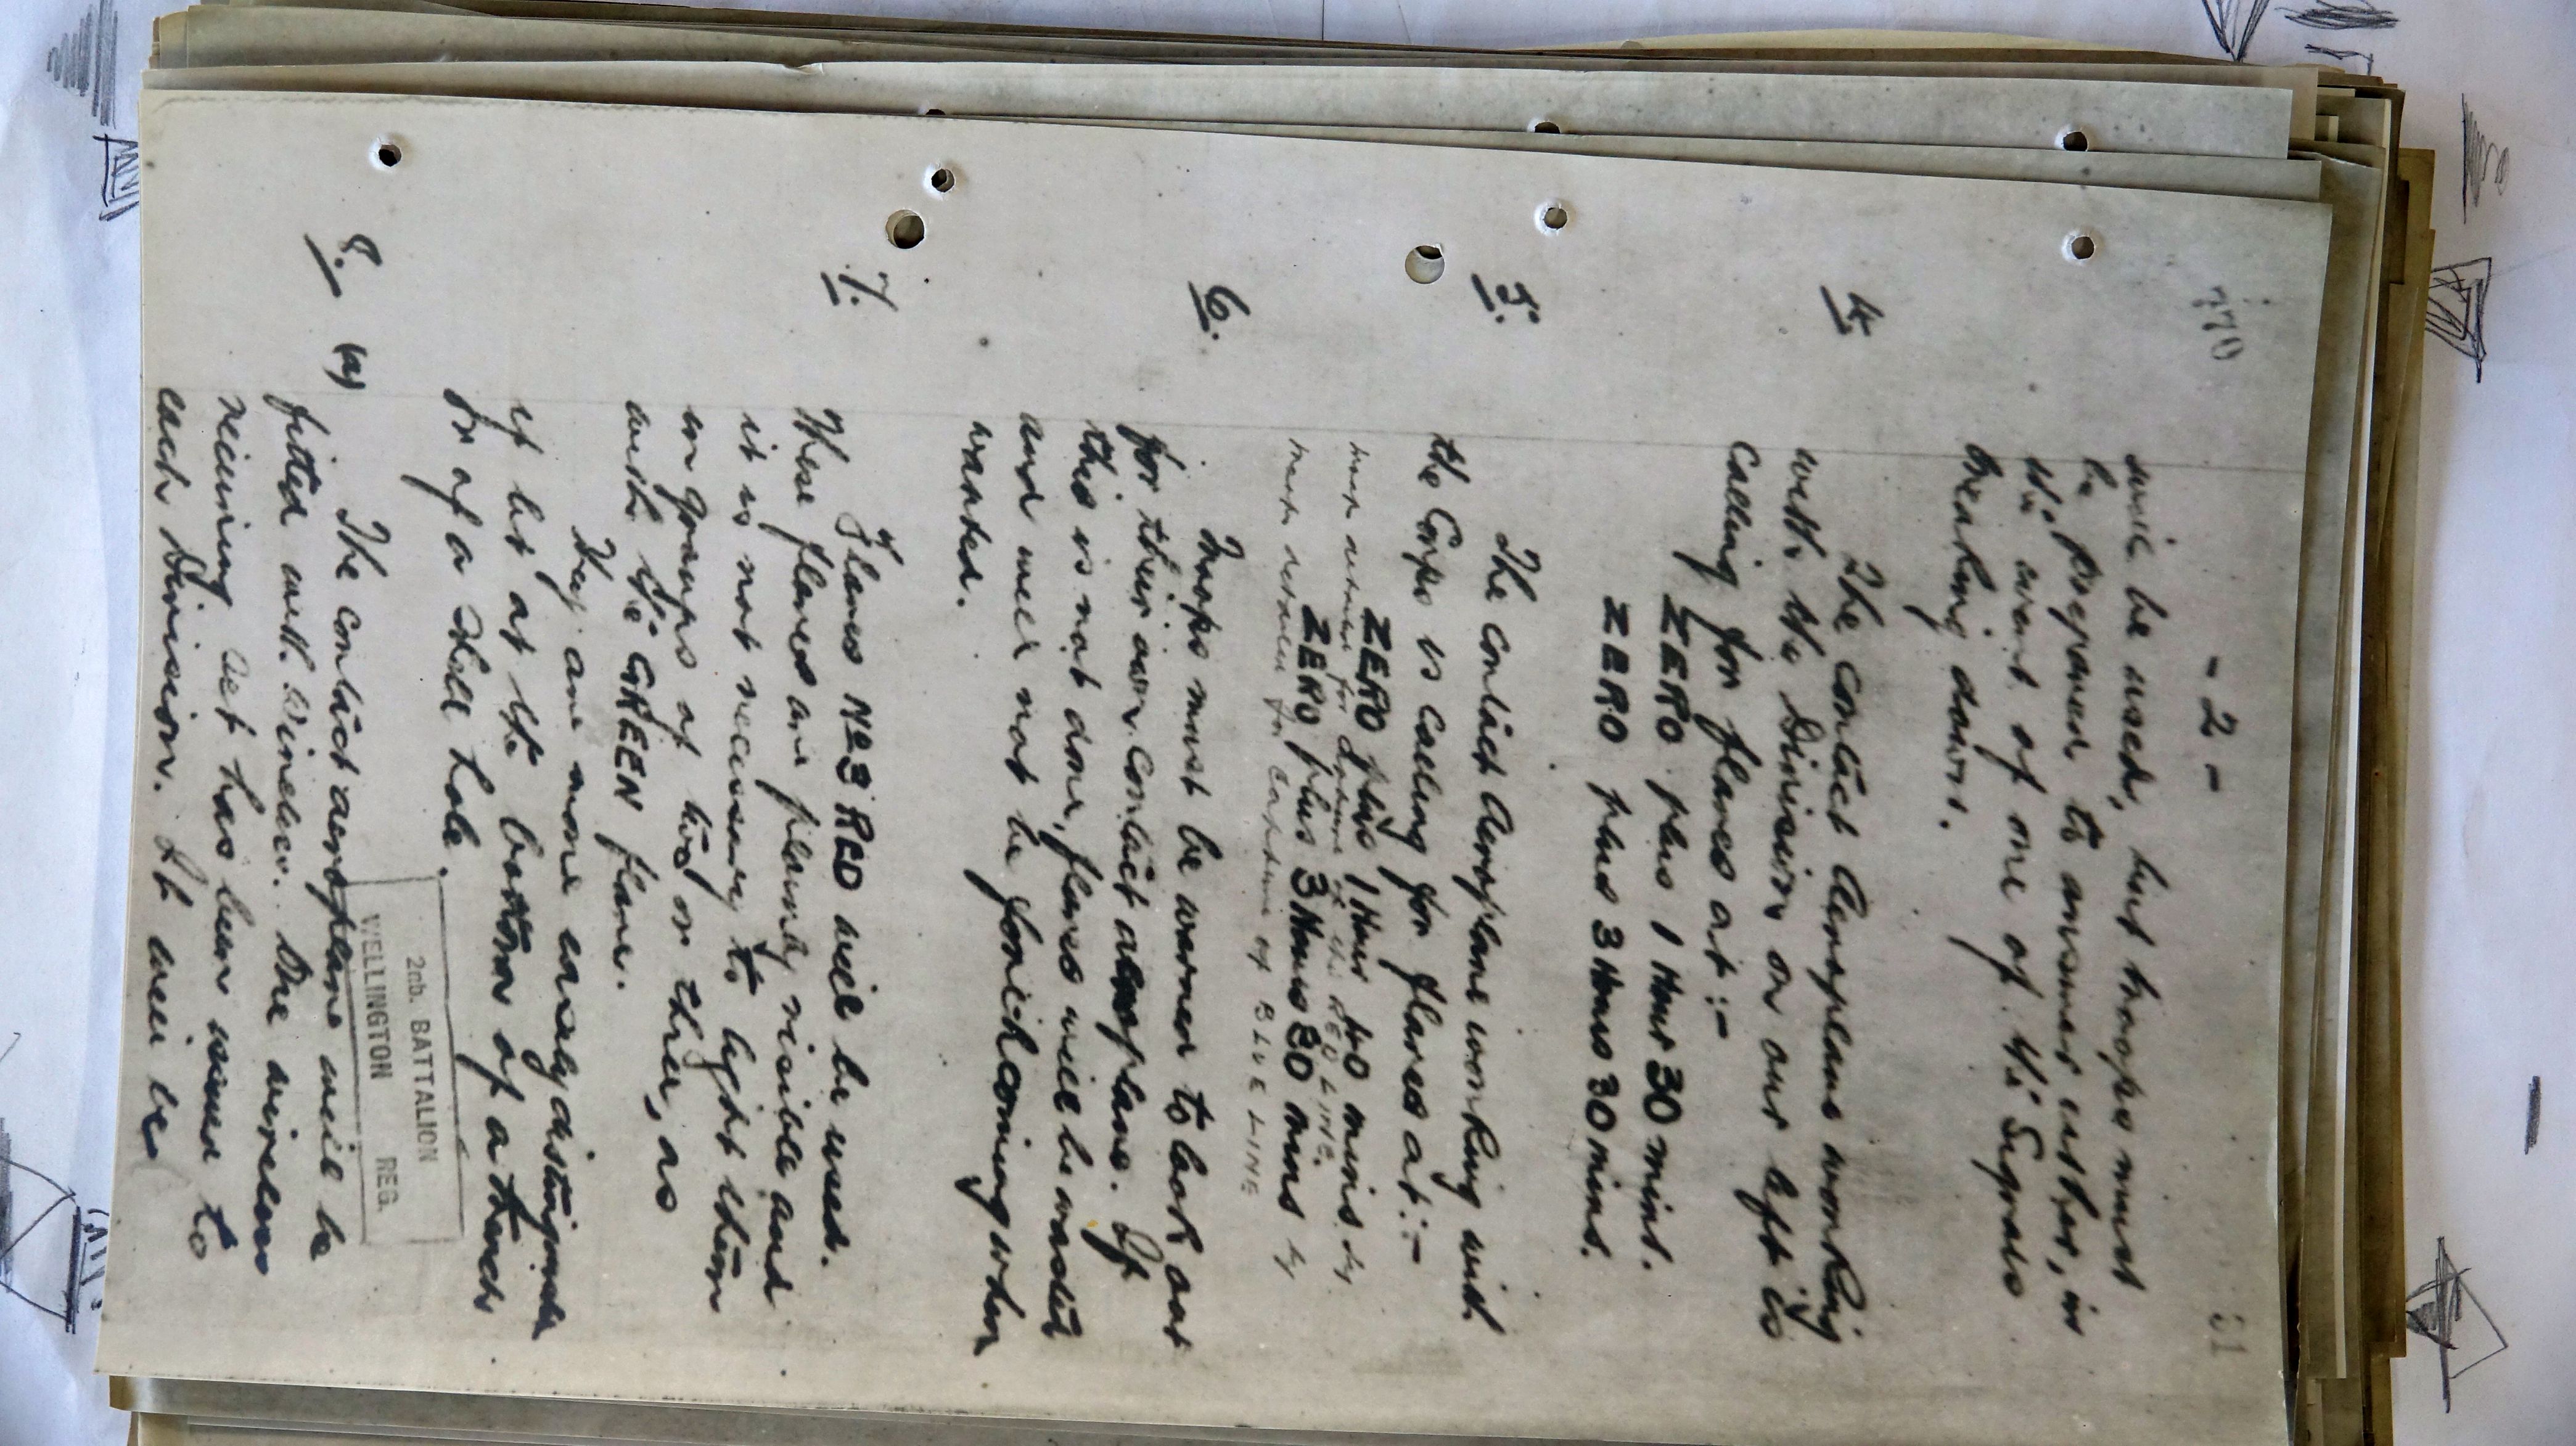 770
- 2 -
31
will be used, but troops must
be prepared to answer either, in
the event of one of the Signals
breaking down.
4. The contact aeroplane working
with the Division on our left is
calling for flares at :-
ZERO plus 1 Hour 30 mins.
ZERO plus 3 Hours 30 mins.
5. The contact aeroplane working with
the Corps is calling for flares at :-
ZERO plus 1 Hour 40 mins by
for of the RED LINE.
ZERO plus 3 Hours 30 mins by
for capture of BLUE LINE
6. Troops must be warned to look out
for their own contact aeroplane. If
this is not done, flares will be wasted
and will not be forthcoming when
wanted.
7. Flares No 3 RED will be used.
These flares are plainly visible and
it is not necessary to light them
in groups of two or three, as
with the GREEN flare.
They are more easily distinguished
if lit at the bottom of a trench
or of a shell hole.
2nb. BATTALION
WELLINGTON REG.
8. (a) The contact aeroplane will be
fitted with wireless. One wireless
receiving set has been issued to
each Division. It will be